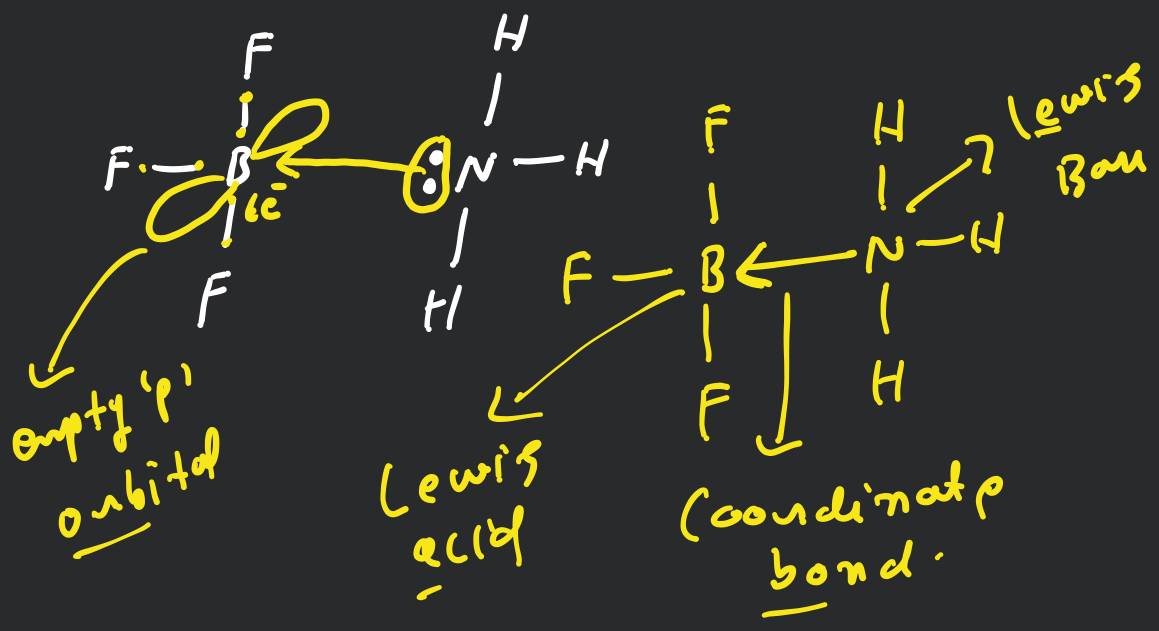 F
H
F — B
6e⁻
: N — H
F
H
empty 'p'
orbital
F
H
Lewis
Base
F — B ← N — H
F
H
Lewis
acid
Coordinate
bond.